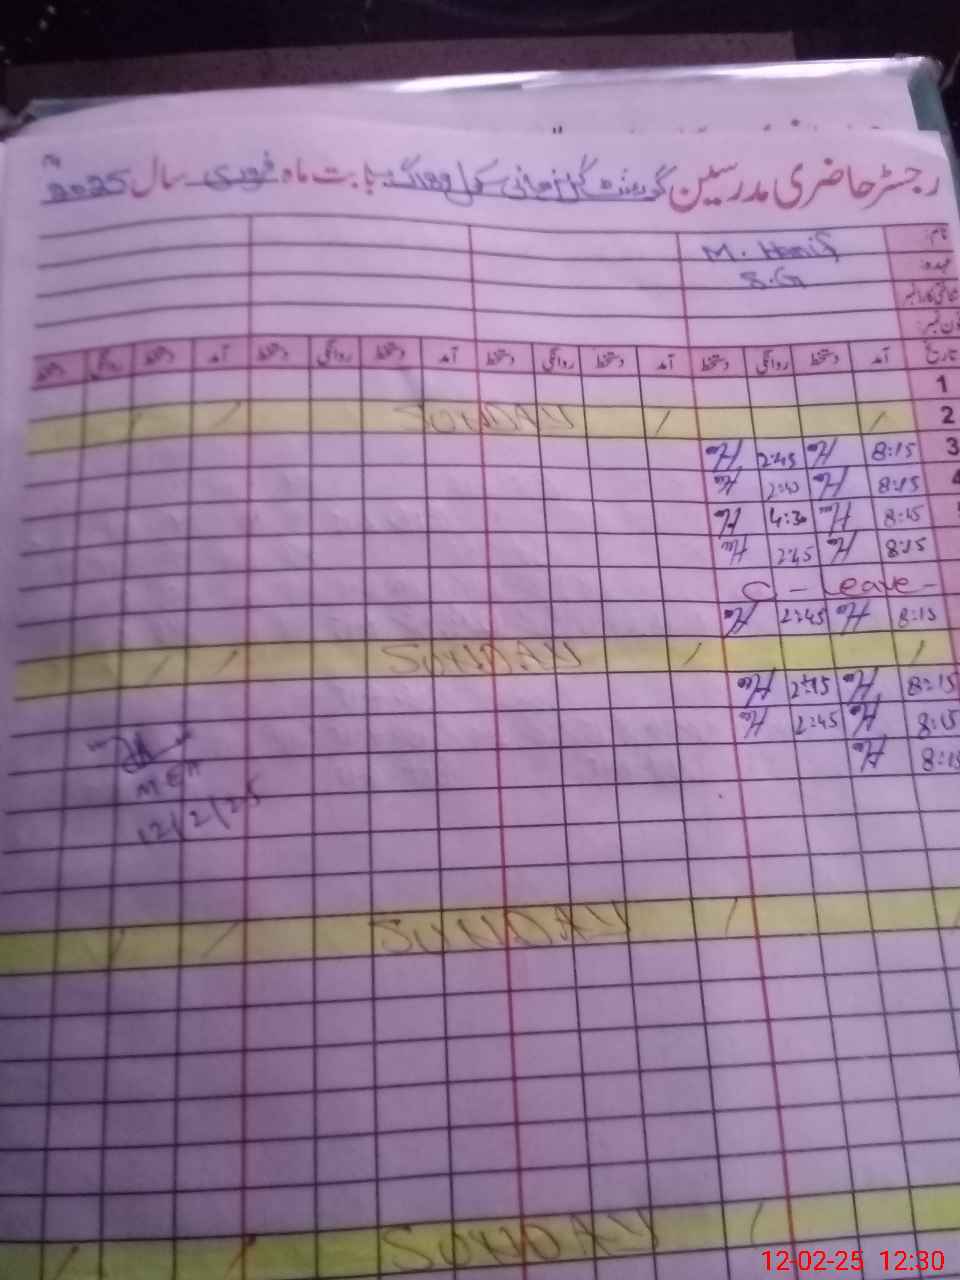 رجسٹر حاضری مدرسین گورنمنٹ گرلز ہائی سکول بابت ماہ فروری سال 2025
نام: M. Hanif
عہدہ: S.G
شناختی کارڈ نمبر
فون نمبر:
تاریخ آمد دستخط روانگی دستخط آمد دستخط روانگی دستخط آمد دستخط روانگی دستخط آمد دستخط روانگی دستخط
1
2 SUNDAY
3 8:15 Ha 2:45 Ha
4 8:15 Ha 2:45 Ha
5 8:15 Ha 4:30 Ha
8:15 Ha 2:45 Ha
C - Leave -
8:15 Ha 2:45 Ha
SUNDAY
8:15 Ha 2:45 Ha
8:15 Ha 2:45 Ha
8:15 Ha
MEA
12/2/25
SUNDAY
SUNDAY
12-02-25 12:30